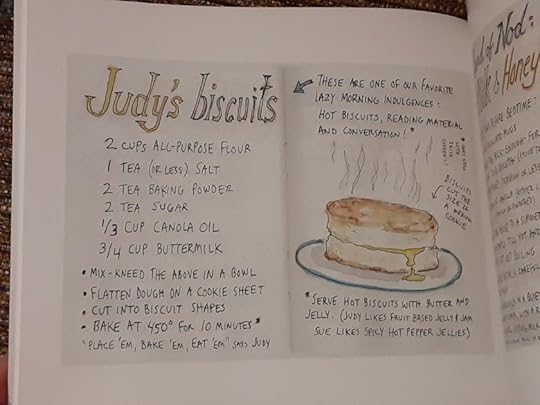 Judy's biscuits
2 CUPS ALL-PURPOSE FLOUR
1 TEA (OR LESS) SALT
2 TEA BAKING POWDER
2 TEA SUGAR
1/3 CUP CANOLA OIL
3/4 CUP BUTTERMILK
• MIX-KNEED THE ABOVE IN A BOWL
• FLATTEN DOUGH ON A COOKIE SHEET
• CUT INTO BISCUIT SHAPES
• BAKE AT 450° FOR 10 MINUTES*
"PLACE 'EM, BAKE 'EM, EAT 'EM" SAYS JUDY
THESE ARE ONE OF OUR FAVORITE
LAZY MORNING INDULGENCES:
HOT BISCUITS, READING MATERIAL
AND CONVERSATION!*
BISCUITS
CUT THE
SIZE OF
A MEDIUM
COOKIE
*SERVE HOT BISCUITS WITH BUTTER AND
JELLY. (JUDY LIKES FRUIT BASED JELLY & JAM
SUE LIKES SPICY HOT PEPPER JELLIES)
of Nod:
& Honey
BEDTIME:
MUGS